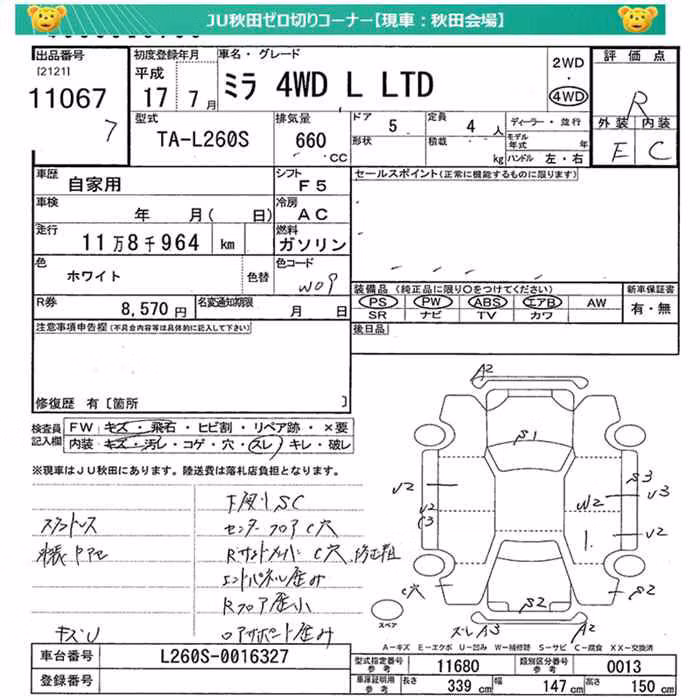 JU秋田ゼロ切りコーナー【現車：秋田会場】
出品番号
[2121]
11067
7
初度登録年月
平成
17 7月
車名・グレード
ミラ 4WD L LTD
2WD
・
4WD
評価点
R
外装 内装
E C
型式
TA-L260S
排気量
660
CC
ドア 5
定員 4人
形状
積載 kg
ディーラー・並行
モデル年式 年
ハンドル 左・右
車歴
自家用
シフト
F5
セールスポイント(正常に機能するものに限ります)
車検
年 月( 日)
冷房
AC
走行
11万8千964 km
燃料
ガソリン
色
ホワイト
色替
色コード
W09
装備品 (純正品に限り○をつけてください)
PS PW ABS エアB AW
SR ナビ TV カワ
新車保証書
有・無
R券
8,570円
名変通知期限
月 日
注意事項申告欄(不具合内容等は具体的に記入して下さい)
後日品
修復歴 有[箇所 ]
検査員
記入欄
FW キズ・飛石・ヒビ割・リペア跡・×要
内装 キズ・汚レ・コゲ・穴・スレ・キレ・破レ
※現車はJU秋田にあります。陸送費は落札店負担となります。
下廻りSC
センターフロアC穴
Rサイドメンバー C穴 修正粗
エンドパネル歪み
Rフロア歪小
キズU
A2
S1
U2
U2
C3
W2
S3
U3
U2
1
C穴
S2
S2
スペア
スレキズ
A2
A=キズ E=エクボ U=凹み W=補修跡 S=サビ C=腐食 XX=交換済
車台番号
L260S-0016327
登録番号
型式指定番号
参考
11680
類別区分番号
参考
0013
車庫証明用
参考
長さ 339 cm
幅 147 cm
高さ 150 cm